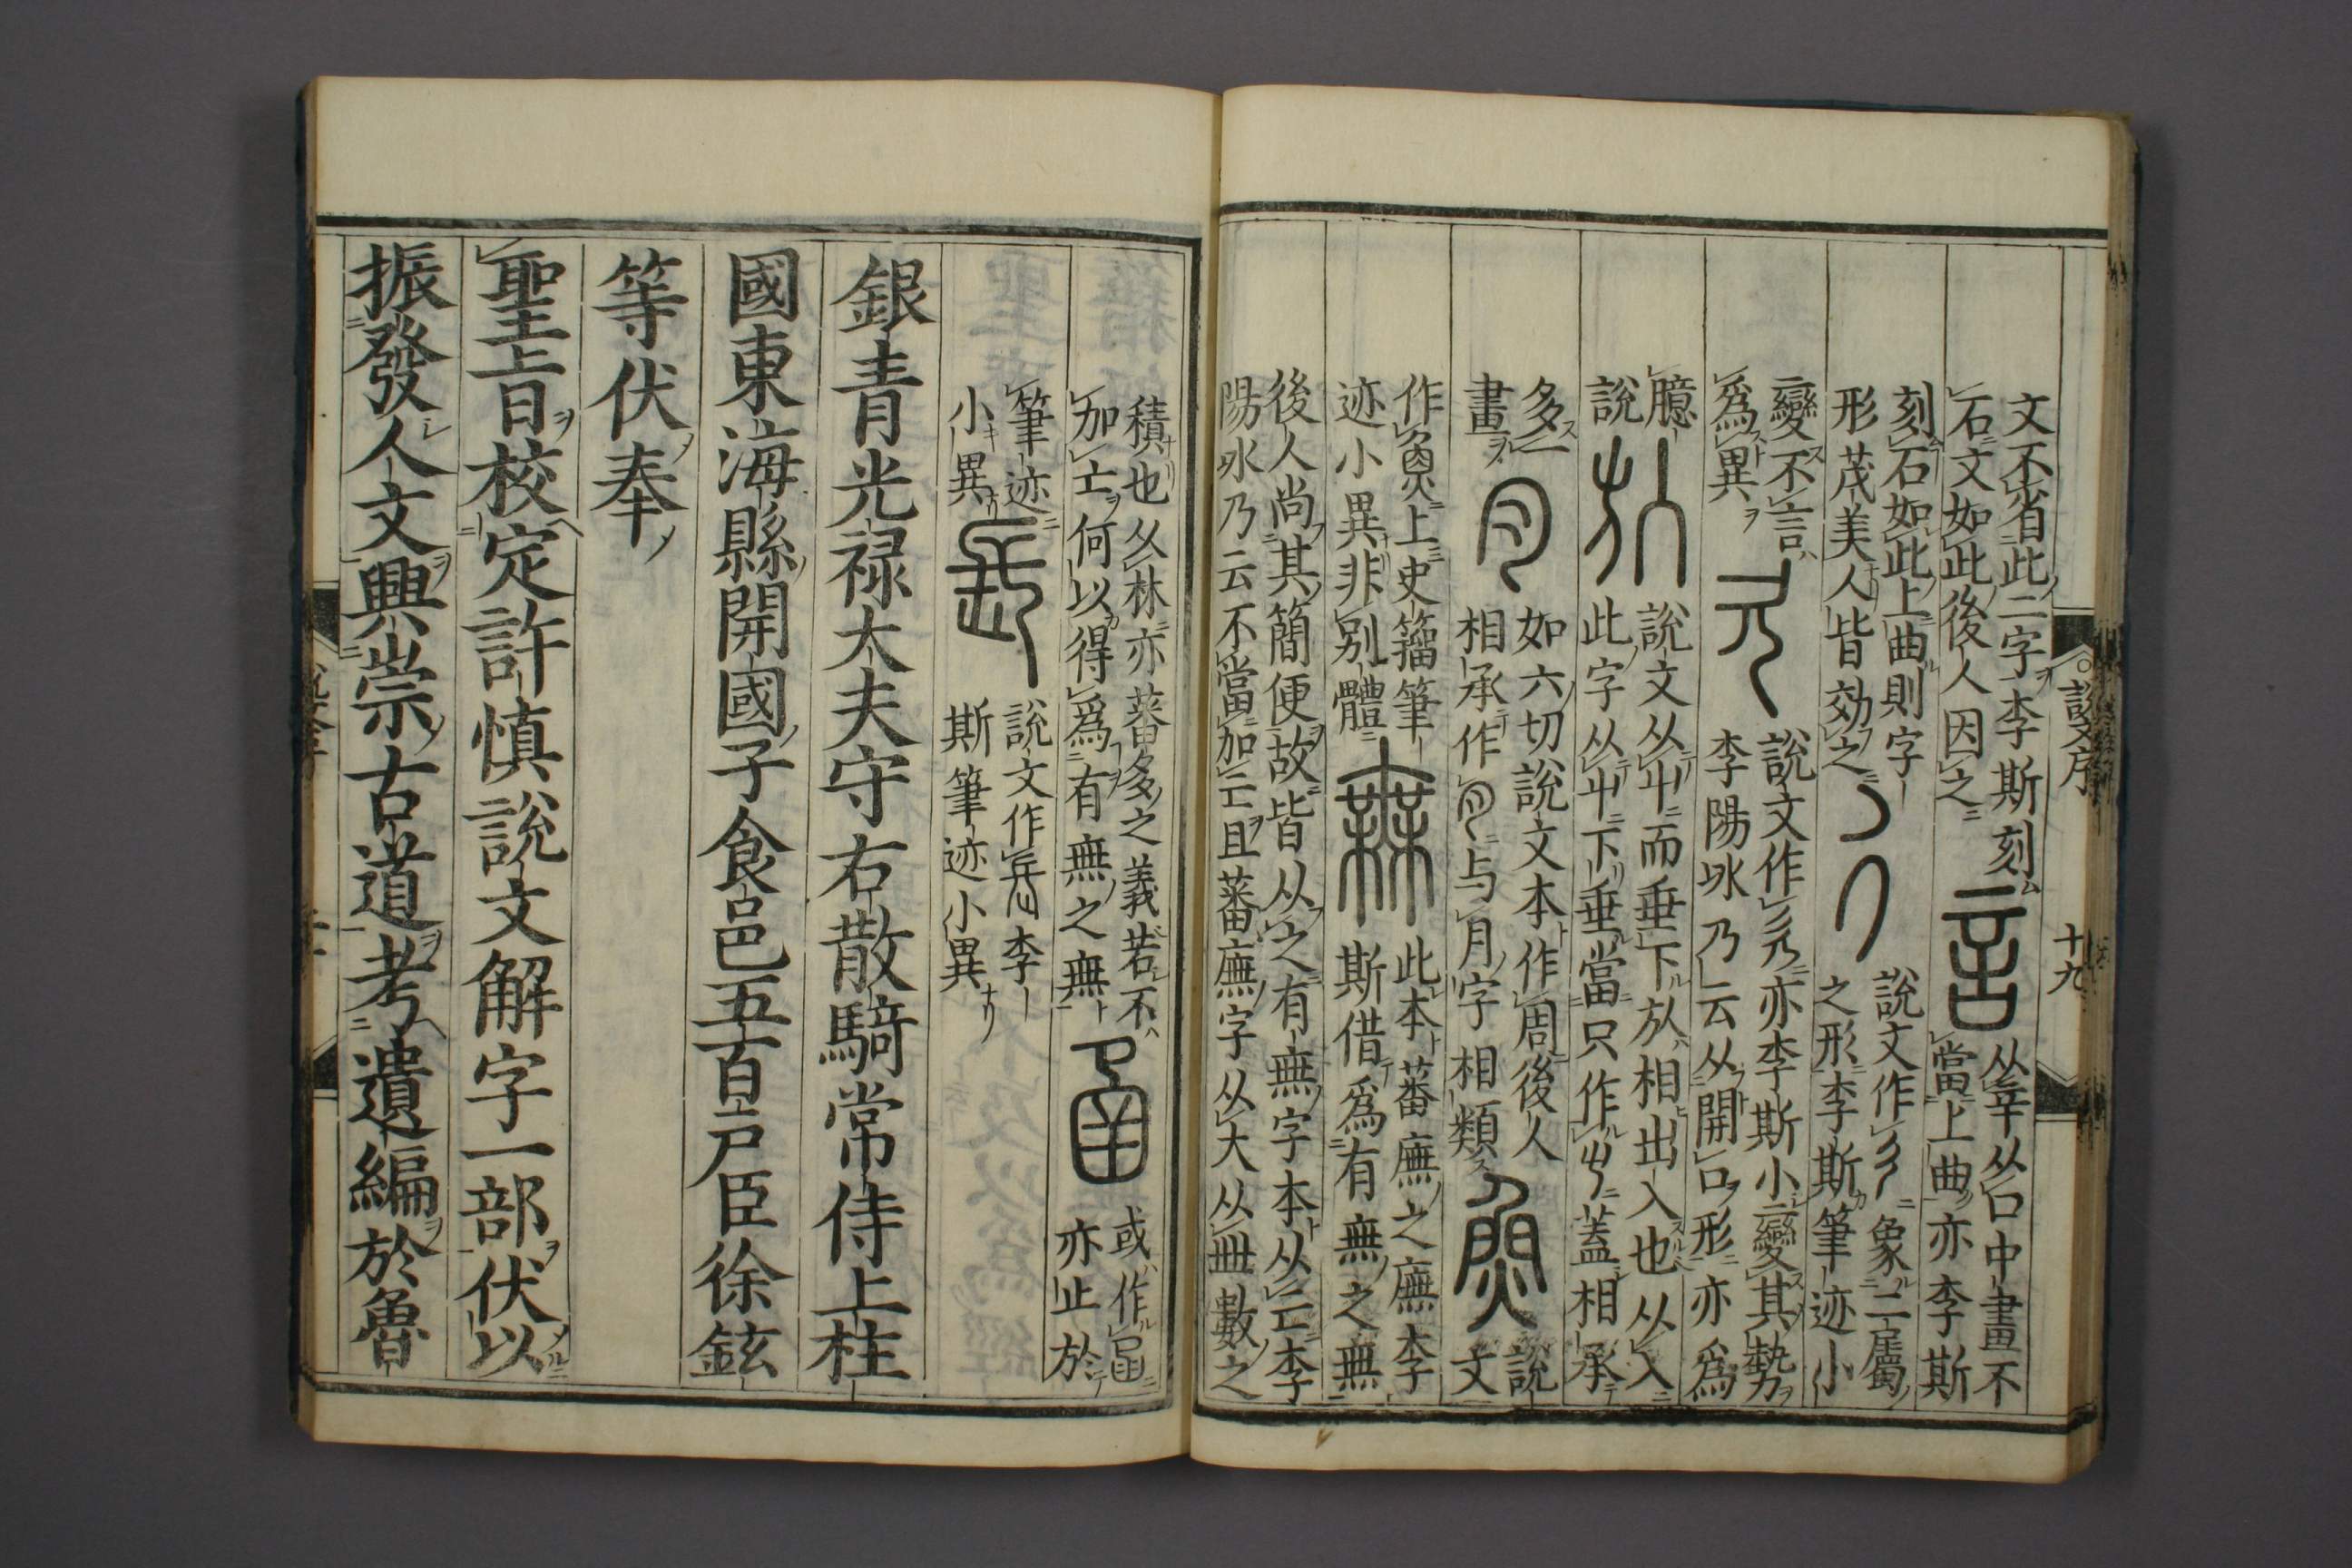 文不省此二字李斯刻
石文如此後人因之
言
从辛从口中畫不
當上曲亦李斯
刻石如此上曲則字
形茂美人皆效之
說文作
象二屬
之形李斯筆迹小
變不言
爲異
說文作
亦李斯小變其勢
李陽冰乃云从開口形亦爲
臆
說
說文从屮而垂下於相出入也从入
此字从屮下垂當只作屮蓋相承
多一
畫
如六切說文本作
後人
相承作
与月字相類
說
文
作
上史籀筆
迹小異非別體
無
此本蕃廡之廡李
斯借爲有無之無
後人尚其簡便故皆从之有無字本从亡李
陽冰乃云不當加亡且蕃廡字从大从卌數之
積也从林亦蕃多之義若不
加亡何以得爲有無之無
或作
亦止於
筆迹
小異
說文作
李
斯筆迹小異
銀青光禄大夫守右散騎常侍上柱
國東海縣開國子食邑五百戸臣徐鉉
等伏奉
聖旨校定許慎說文解字一部伏以
振發人文興崇古道考遺編於魯
說文序
十九